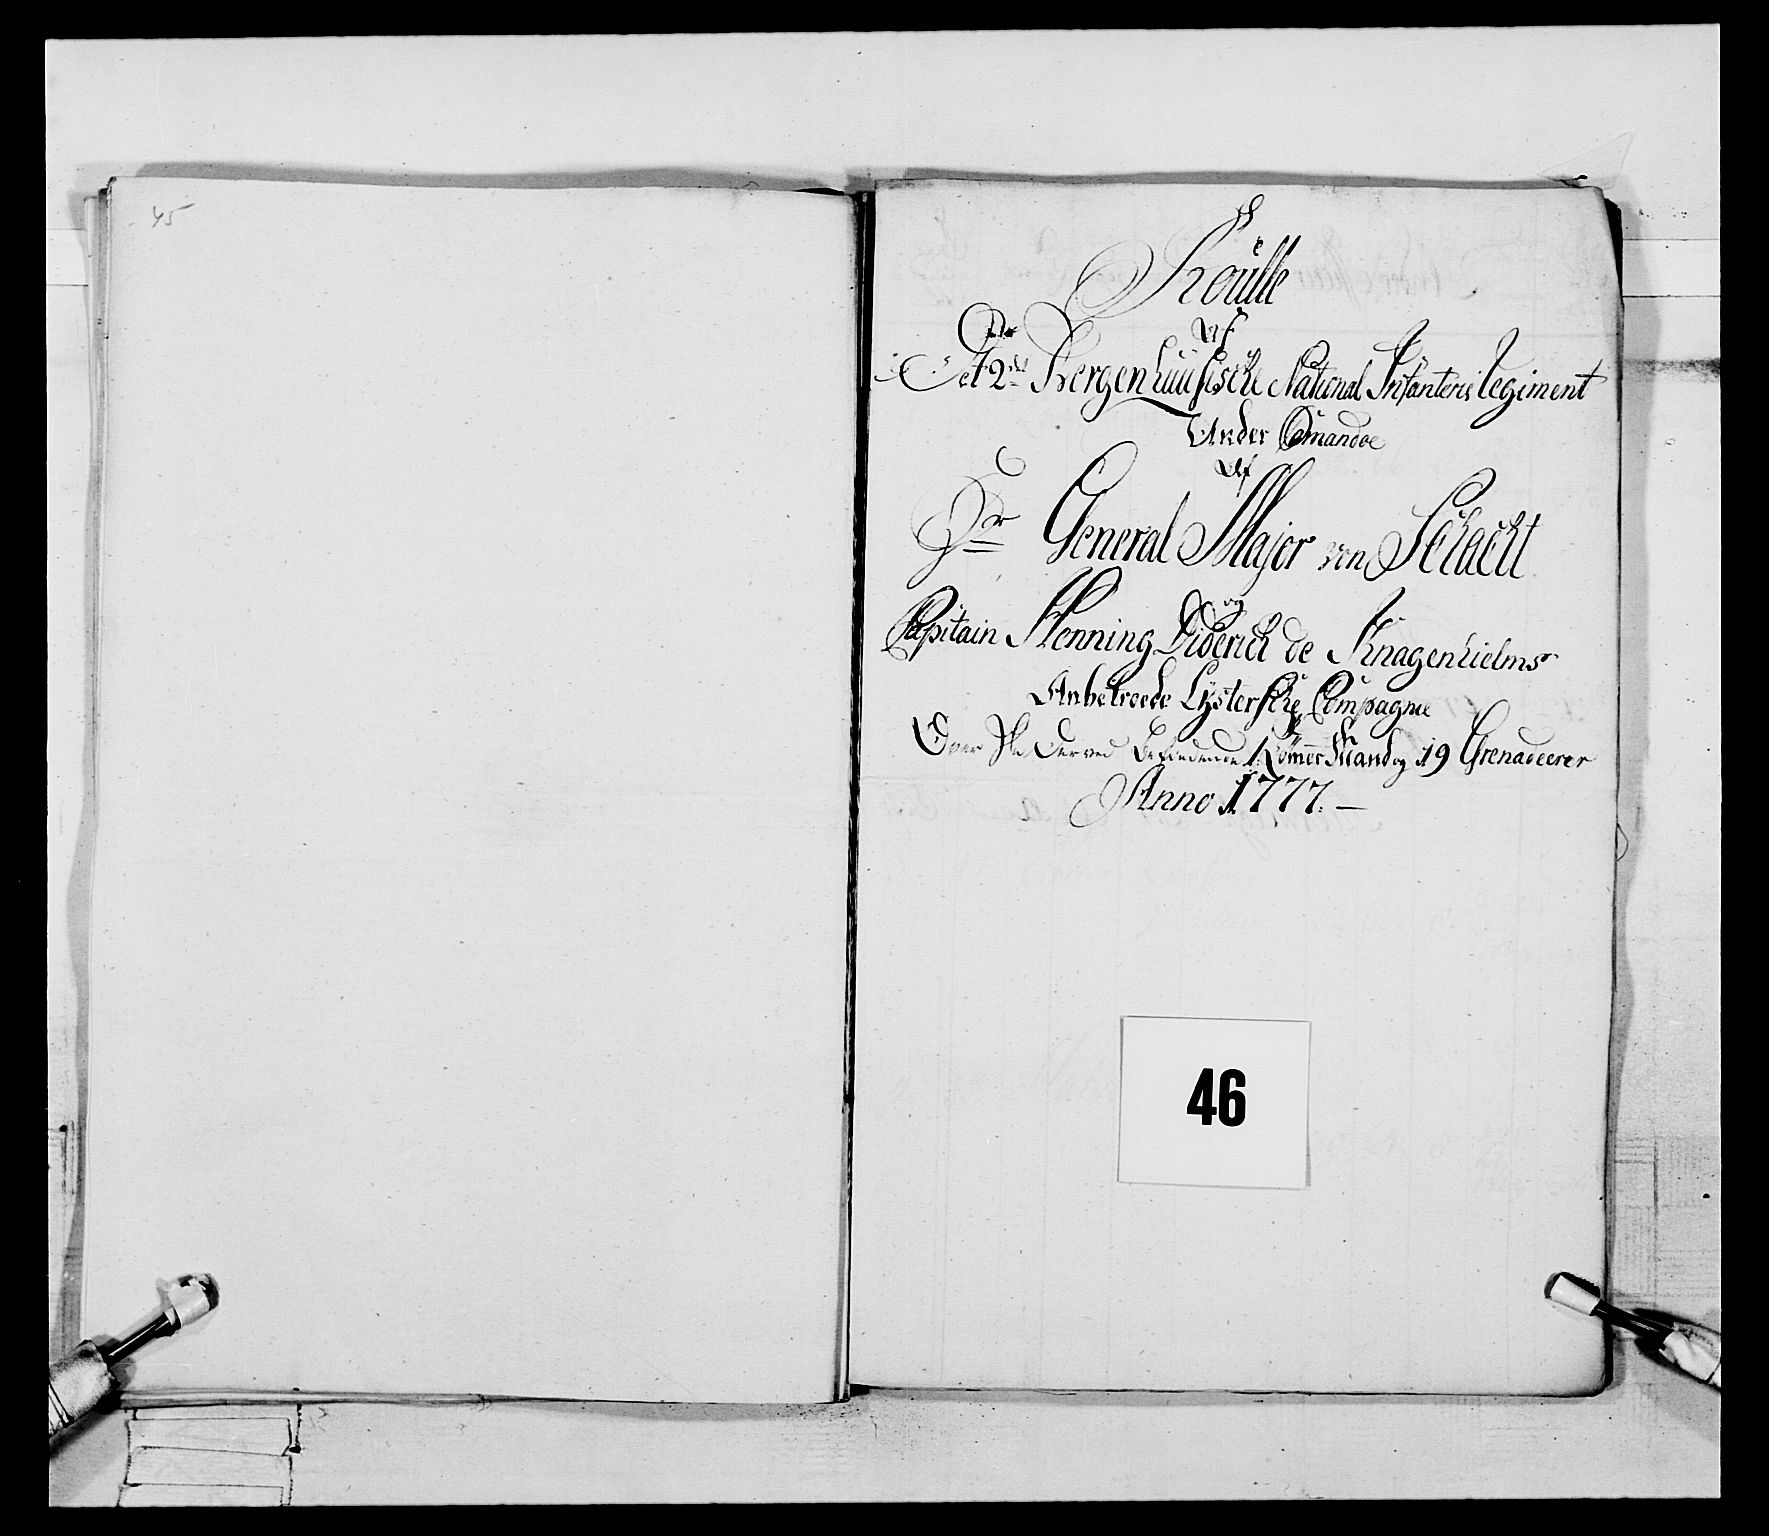 45
Roulle
Af
Det 2det Bergenhuusische National Infanterie Regiment
Under Comandoe
Af
Hr General Major von Schacht
og
Capitain Henning Diderich de Knagenhielms
Anbetroede Lystersche Compagnie
Over De Derved Befindende Tømer Mand og 19 Grenadeerer
Anno 1777. —
46